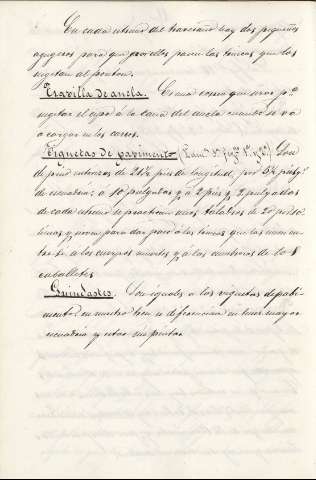 En cada extremo del travesaño hay dos pequeños
agujeros para que por ellos pasen las trincas que los
sugetan al ponton.
Travilla de ancla. Es una cosa que sirve pª
sugetar el cepo á la caña del ancla cuando se va
a cargar en los carros.
Viguetas de pavimento (Lamª 3ª figs 1ª y 2ª). Son
de pino extensas de 21½ pies de longitud, por 5½ pulgs
de escuadria: a 10 pulgadas y á 2 pies y 2 pulgadas
de cada extremo se practican unos taladros de 20
lineas y sirven para dar paso á las trincas que las
á los cuerpos muertos y á las cumbreras de los
caballetes
Guindastes. Son iguales a las viguetas de pabi-
mento en nuestro tren se diferencian en tener mayor
escuadria y estar sin pintar.